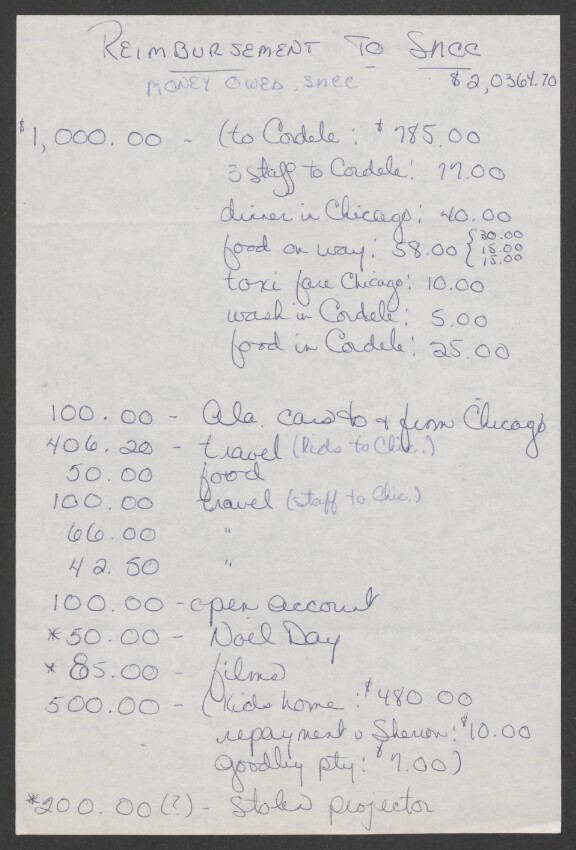 REIMBURSEMENT TO SNCC
MONEY OWED, SNCC $2,0364.70
$1,000.00 - (to Cordele: $785.00
3 staff to Cordele: 77.00
dinner in Chicago: 40.00
food on way: 58.00 { 30.00
15.00
15.00
taxi fare Chicago: 10.00
wash in Cordele: 5.00
food in Cordele: 25.00
100.00 - Ala. cars to & from Chicago
406.20 - travel (kids to Chic.)
50.00 food
100.00 travel (staff to Chic.)
66.00 "
42.50 "
100.00 - open account
*50.00 - Noel Day
*85.00 - films
500.00 - (kids home: $480 00
repayment Sharon: $10.00
goodby pty: $7.00)
*200.00(?) - stolen projector